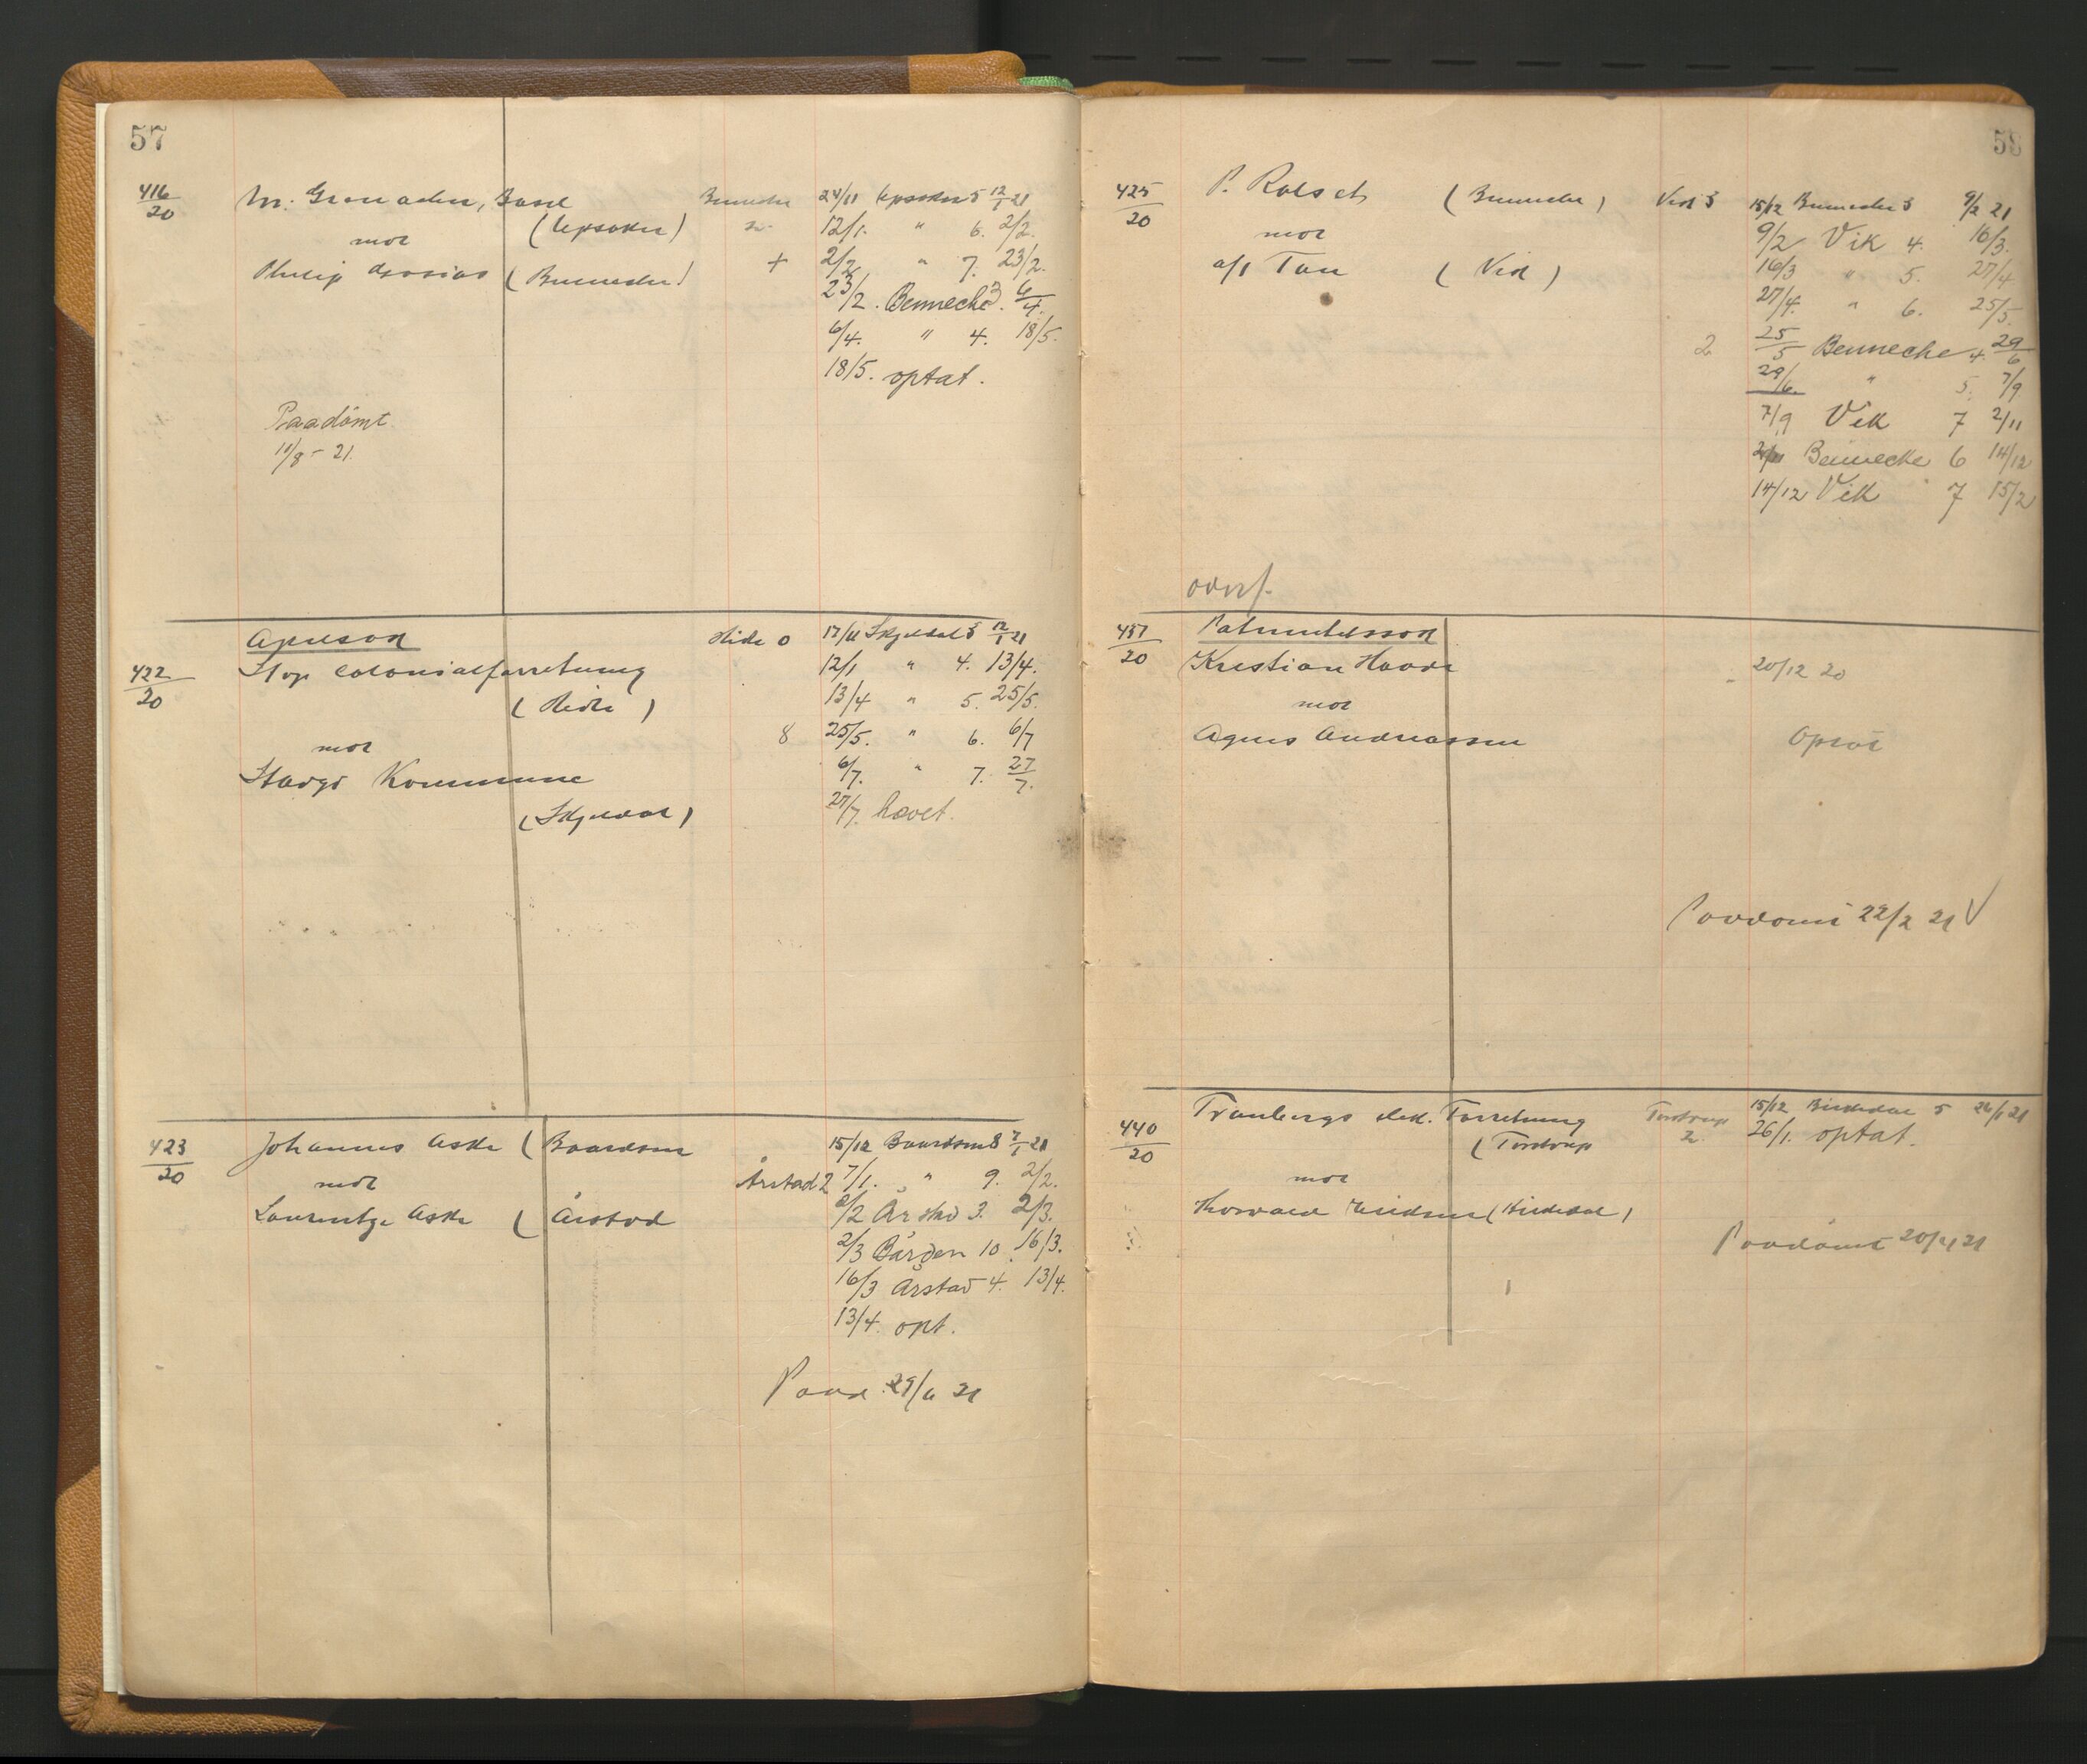 57
416/20
M. Gren aden, Basel
(Upsaker)
mot
Philip (Bennecke)
Bennecke
+
24/11 Upsaker 5 12/1 21
12/1. " 6. 2/2.
2/2 " 7. 23/2.
23/2. Bennecke 3. 6/4.
6/4. " 4. 18/5.
18/5. optat.
Paadömt
11/8 - 21.
Apelsak
422/20
Stvgs Colonialforretning
(Heide)
mot
Stavgs Kommune
(Skjeldal)
Heide 0
8
17/11 Skjeldal 3 12/1 21
12/1 " 4. 13/4.
13/4 " 5. 25/5.
25/5. " 6. 6/7
6/7. " 7. 27/7.
27/7. hævet.
423/20
Johannes Aske (Baardsen
mot
Laurentze Aske (Årstad
Årstad 2
15/12 Baardsen 8 7/1 21
7/1. " 9. 2/2.
2/2 Årstad 3. 2/3.
2/3 Bårdsen 10. 16/3.
16/3 Årstad 4. 13/4.
13/4. opt.
Paad 29/6 21
58
425/20
P. Rolsch (Bennecke)
mot
a/s Tau (Vik)
Vik 3
2
15/12 Bennecke 3 9/2 21
9/2 Vik 4. 16/3.
16/3 " 5. 27/4
27/4. " 6. 25/5.
25/5 Bennecke 4. 29/6
29/6. " 5. 7/9
7/9 Vik 7 2/11
2/11 Bennecke 6 14/12
14/12 Vik 7 15/2
overf.
437/20
Paternitetssak
Kristian Haave
mot
Agnes Andreassen
20/12 20
Optat
Paadømt 22/2 21 V
440/20
Tranbergs elek. Forretning
(Tordrup
mot
Thorvald (Birkedal)
Tordrup
2.
15/12 Birkedal 5 26/1 21
26/1. optat.
Paadømt 20/4 21